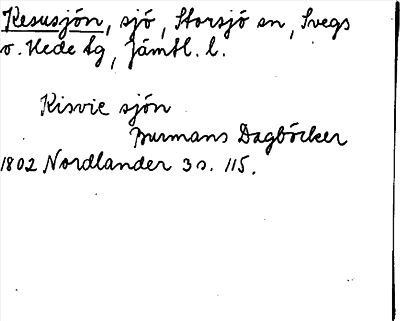 Kesusjön, sjö, Storsjö sn, Svegs
o. Hede tg, Jämtl. l.
Kisvie sjön
Burmans Dagböcker
1802 Nordlander 3 s. 115.